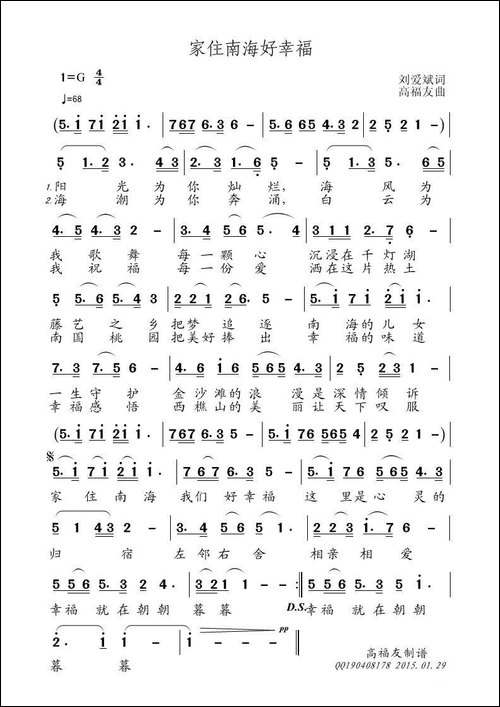 家住南海好幸福
1=G 4/4
♩=68
刘爱斌词
高福友曲
(5. i 7i 2i i. | 767 6.3 6 - | 5.6 65 4.3 2 | 2 5 21 - )
5 1.2 3. 43 | 2.3 1.6 5 - | 5 1.3 5. 65
1.阳 光 为 你 灿 烂, 海 风 为
2.海 潮 为 你 奔 涌, 白 云 为
4.5 4.3 2 - | 3.4 56 50. | 3 11 2.7 6
我 歌 舞 每 一 颗 心 沉浸在 千 灯 湖
我 祝 福 每 一 份 爱 洒在这 片 热 土
5 5.6 5.4 3 | 22 1 26 5 - | 5. i 7i 2i i
藤 艺 之 乡 把 梦 追 逐 南 海的 儿 女
南 国 桃 园 把美好 捧 出 幸 福的 味 道
7.3 7.5 6 - | 5.6 5.3 4 3 | 2 2 1 2 3 5
一 生 守 护 金 沙滩 的 浪 漫 是 深 情 倾 诉
幸 福 感 悟 西 樵山 的 美 丽 让 天 下 叹 服
(5. i 7i 2i i. | 767 6.3 5 - | 5. i 76 565 4 | 2 5 21 - )
5. i 7i 2i i. | 7 67 6.3 5 - | 5. i 76 565 4.3
家 住 南 海 我 们 好 幸 福 这 里 是 心 灵 的
5 1 43 2 - | 3.4 56 5 - | 335 223 1.7 6
归 宿 左 邻 右 舍 相 亲 相 爱
556 5.3 2 4. | 22 1 1 - - :| 556 5.3 2 4.
幸福 就 在 朝 朝 暮 暮 D.S. 幸福 就 在 朝 朝
2. i i - - | i - - - | pp
暮 暮
高福友制谱
QQ190408178 2015.01.29